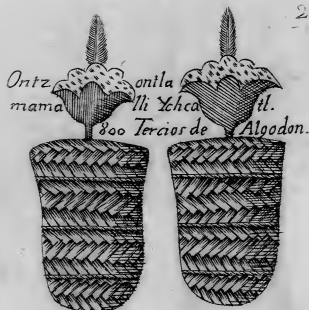 2
Ontzontla
mamalli Ychcatl.
800 Tercios de Algodon.